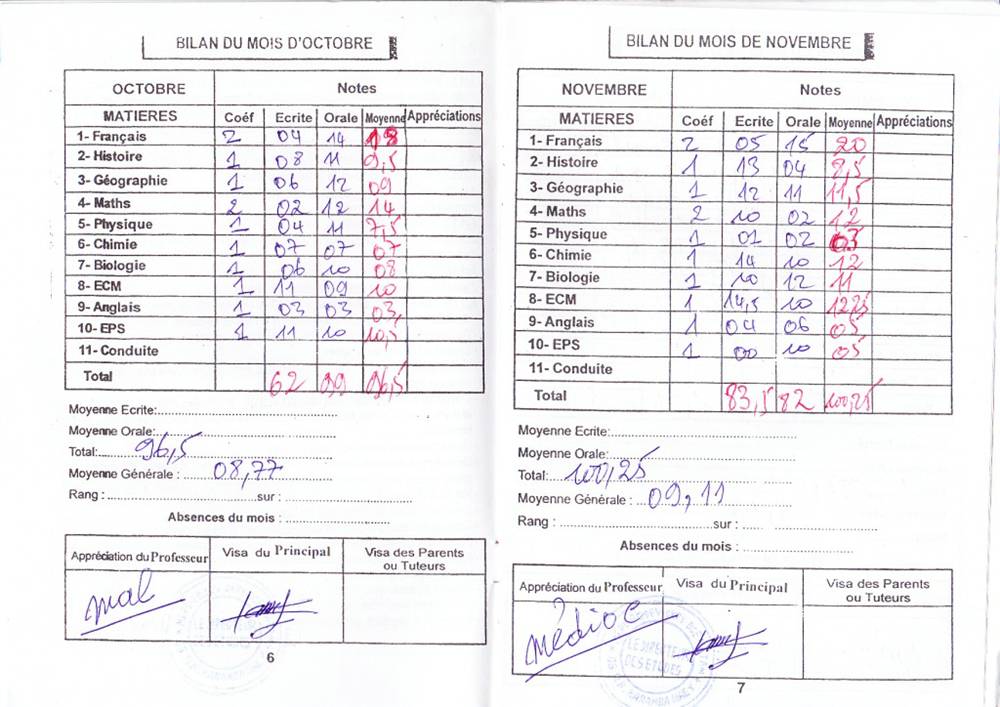 BILAN DU MOIS D'OCTOBRE
OCTOBRE Notes
MATIERES Coéf Ecrite Orale Moyenne Appréciations
1- Français 2 04 14 18
2- Histoire 1 08 11 9,5
3- Géographie 1 06 12 09
4- Maths 2 02 12 14
5- Physique 1 04 11 7,5
6- Chimie 1 07 07 07
7- Biologie 1 06 10 08
8- ECM 1 11 09 10
9- Anglais 1 03 03 03,
10- EPS 1 11 10 10,5
11- Conduite
Total 62 99 96,5
Moyenne Ecrite:
Moyenne Orale:
Total: 96,5
Moyenne Générale : 08,77
Rang : sur :
Absences du mois :
Appréciation du Professeur Visa du Principal Visa des Parents
ou Tuteurs
mal
6
BILAN DU MOIS DE NOVEMBRE
NOVEMBRE Notes
MATIERES Coéf Ecrite Orale Moyenne Appréciations
1- Français 2 05 15 20
2- Histoire 1 13 04 8,5
3- Géographie 1 12 11 11,5
4- Maths 2 10 02 12
5- Physique 1 01 02 03
6- Chimie 1 14 10 12
7- Biologie 1 10 12 11
8- ECM 1 14,5 10 12,25
9- Anglais 1 04 06 05
10- EPS 1 00 10 05
11- Conduite
Total 83,5 82 100,25
Moyenne Ecrite:
Moyenne Orale:
Total: 100,25
Moyenne Générale : 09,11
Rang : sur :
Absences du mois :
Appréciation du Professeur Visa du Principal Visa des Parents
ou Tuteurs
médioc
LE DIRECTEUR
DES ETUDES
7